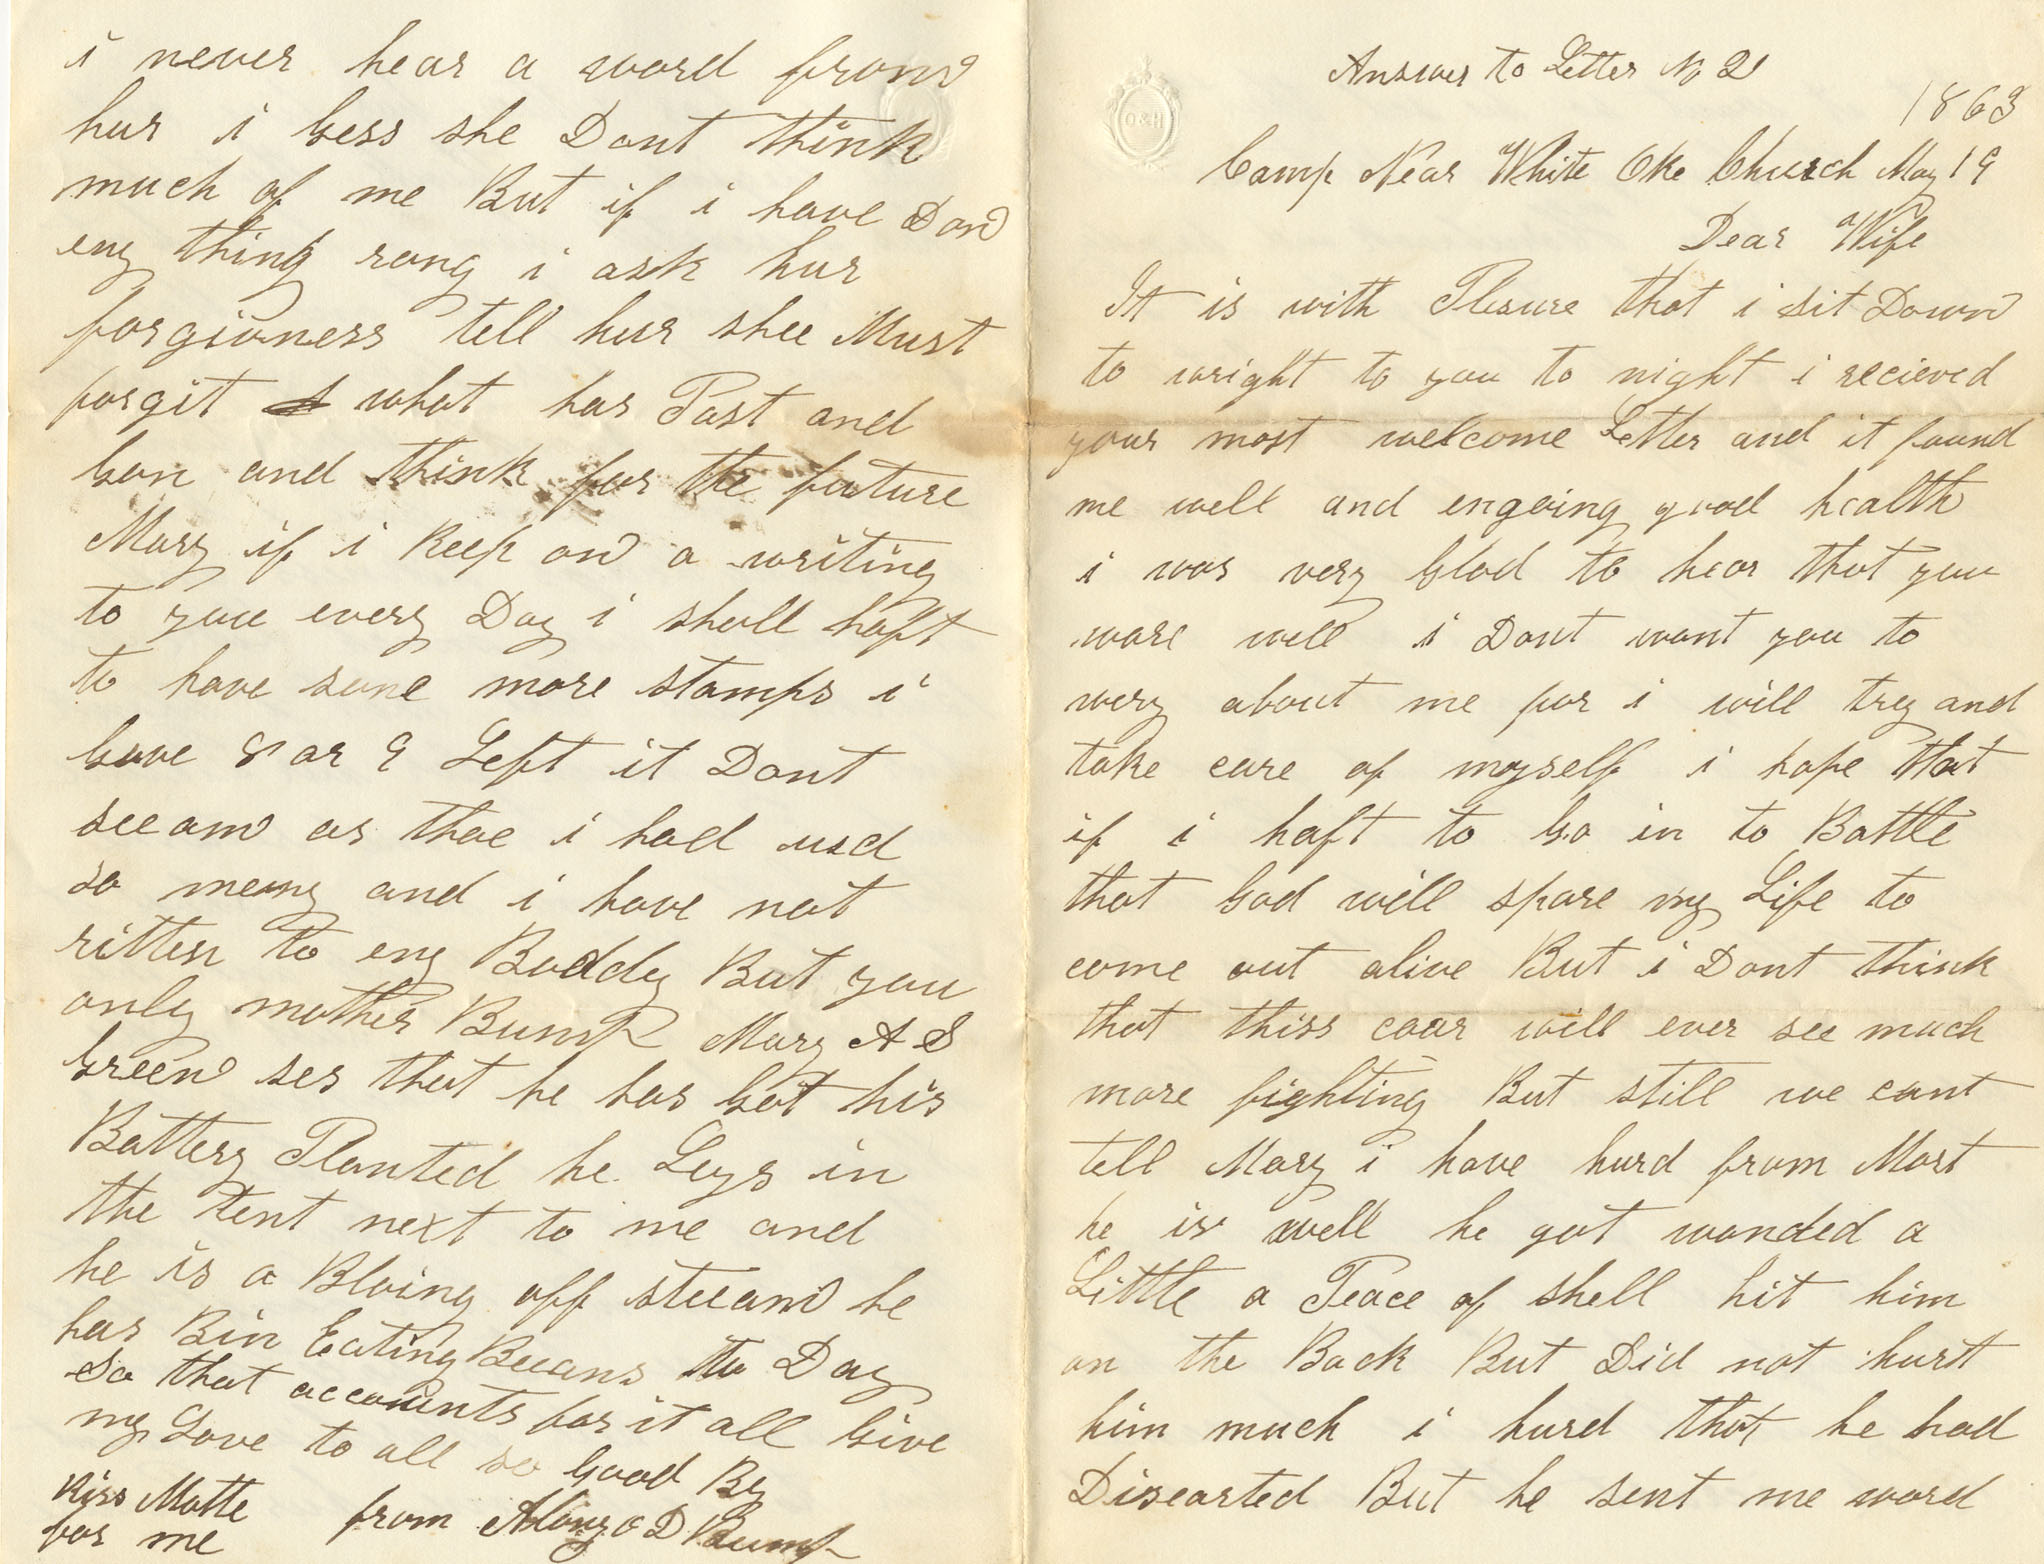 Answer to Letter No 21
1863
Camp Near White Oke Church May 19
Dear Wife
It is with Plesure that i sit Down
to wright to you to night i recieved
your most welcome Letter and it found
me well and engoing good health
i was very Glad to hear that you
ware well i Dont want you to
wery about me for i will trey and
take care of myself i hope that
if i haft to Go in to Battle
that God will spare my Life to
come out alive But i Dont think
that thiss coar will ever see much
more fighting But still we cant
tell Mary i have hurd from Mort
he is well he got wonded a
Little a Peace of shell hit him
on the Back But Did not hurt
him much i hurd that he had
Disearted But he sent me word
i never hear a word from
hur i Gess she Dont think
much of me But if i have Don
eny thing rong i ask hur
forgivness tell hur shee Must
forgit what has Past and
Gon and think for the future
Mary if i Keep on a writing
to you every Day i shall haft
to have sone more stamps i
have 8 or 9 Left it Dont
seeam as thoe i had usd
so meany and i have not
ritten to eny Boddy But you
only mother Bump Mary A S
Green ses that he has Got his
Battery Planted he Lays in
the tent next to me and
he is a Bloing off steeam he
has Bin Eating Beeans to Day
So that accounts for it all Give
my Love to all so Good By
Kiss Matte
for me
from Alonzo D Bump